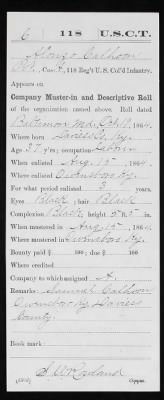 C 118 U.S.C.T.
Alonzo Calhoon
Pvt., Co. F, 118 Reg't U.S. Col'd Infantry.
Appears on
Company Muster-in and Descriptive Roll
of the organization named above. Roll dated
Baltimore Md. Oct 11, 1864.
Where born Daviess Co, Ky.
Age 37 y'rs; occupation Laborer
When enlisted Aug. 15, 1864.
Where enlisted Owensboro Ky.
For what period enlisted 3 years.
Eyes Black; hair Black
Complexion Black; height 5 ft. 5 in.
When mustered in Aug. 15, 1864.
Where mustered in Owensboro Ky.
Bounty paid $ 100; due $ 100
Where credited
Company to which assigned A.
Remarks: Samuel Calhoon
Owensboro Ky Daviess
County.
Book mark:
Copyist.